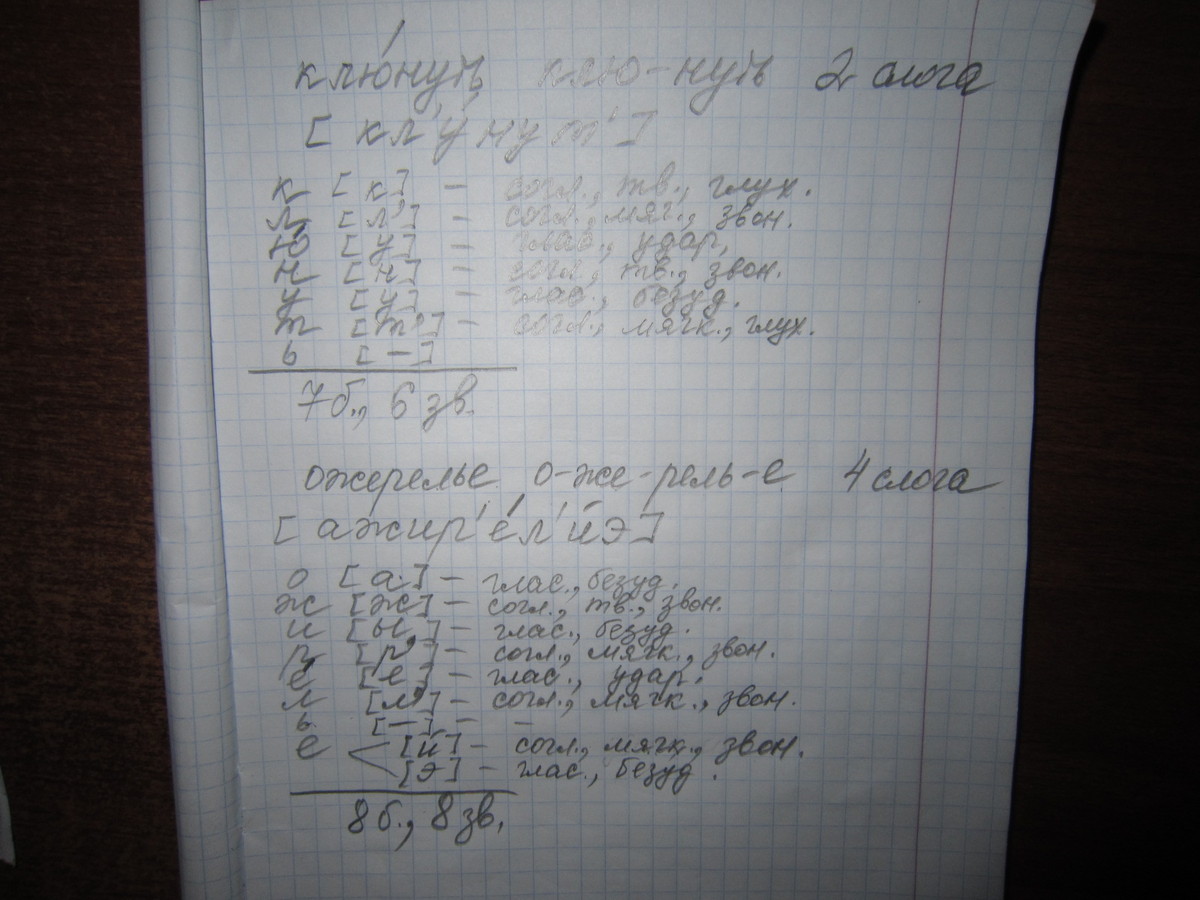 клю́нуть клю-нуть 2 слога
[кл'у́нут']
к [к] – согл., тв., глух.
л [л'] – согл., мяг., звон.
ю [у] – глас., удар,
н [н] – согл, тв., звон.
у [у] – глас., безуд.
т [т'] – согл., мягк., глух.
ь [–]
7б., 6 зв.
ожерелье о-же-рель-е 4 слога
[ажир'е́л'йэ]
о [а] – глас., безуд.
ж [ж] – согл., тв., звон.
и [ы] – глас., безуд.
р [р'] – согл., мягк., звон.
е [е] – глас., удар.
л [л'] – согл., мягк., звон.
ь [–] – –
е < [й] – согл., мягк., звон.
[э] – глас., безуд.
8б., 8зв.